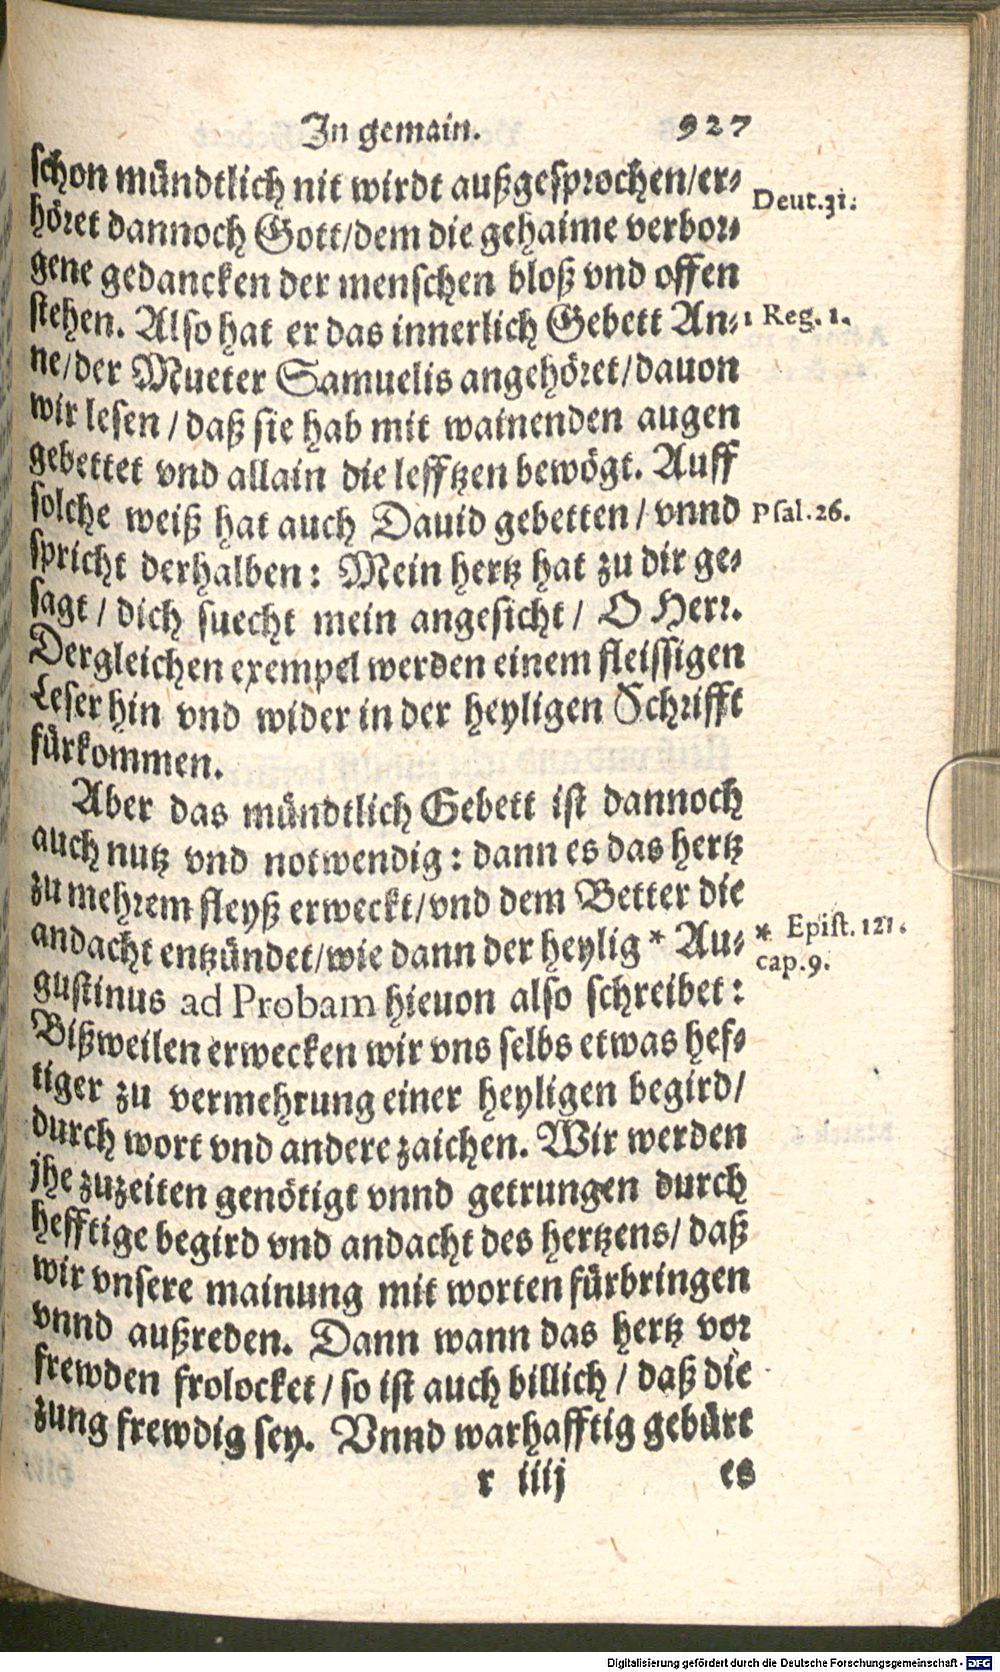 In gemain. 927
schon mündtlich nit wirdt außgesprochen/er-
höret dannoch Gott/dem die gehaime verbor-
gene gedancken der menschen bloß vnd offen
stehen. Also hat er das innerlich Gebett An-
ne/der Mueter Samuelis angehöret/dauon
wir lesen / daß sie hab mit wainenden augen
gebettet vnd allain die lefftzen bewögt. Auff
solche weiß hat auch Dauid gebetten / vnnd
spricht derhalben: Mein hertz hat zu dir ge-
sagt / dich suecht mein angesicht / O Herr.
Dergleichen exempel werden einem fleissigen
Leser hin vnd wider in der heyligen Schrifft
fürkommen.
Aber das mündtlich Gebett ist dannoch
auch nutz vnd notwendig: dann es das hertz
zu mehrem fleyß erweckt/vnd dem Better die
andacht entzündet/wie dann der heylig * Au-
gustinus ad Probam hieuon also schreibet:
Bißweilen erwecken wir vns selbs etwas hef-
tiger zu vermehrung einer heyligen begird/
durch wort vnd andere zaichen. Wir werden
jhe zuzeiten genötigt vnnd getrungen durch
hefftige begird vnd andacht des hertzens/ daß
wir vnsere mainung mit worten fürbringen
vnnd außreden. Dann wann das hertz vor
frewden frolocket / so ist auch billich / daß die
zung frewdig sey. Vnnd warhafftig gebürt
r iiij es
Deut.31.
1 Reg. 1.
Psal.26.
* Epist. 121.
cap.9.
Digitalisierung gefördert durch die Deutsche Forschungsgemeinschaft - DFG